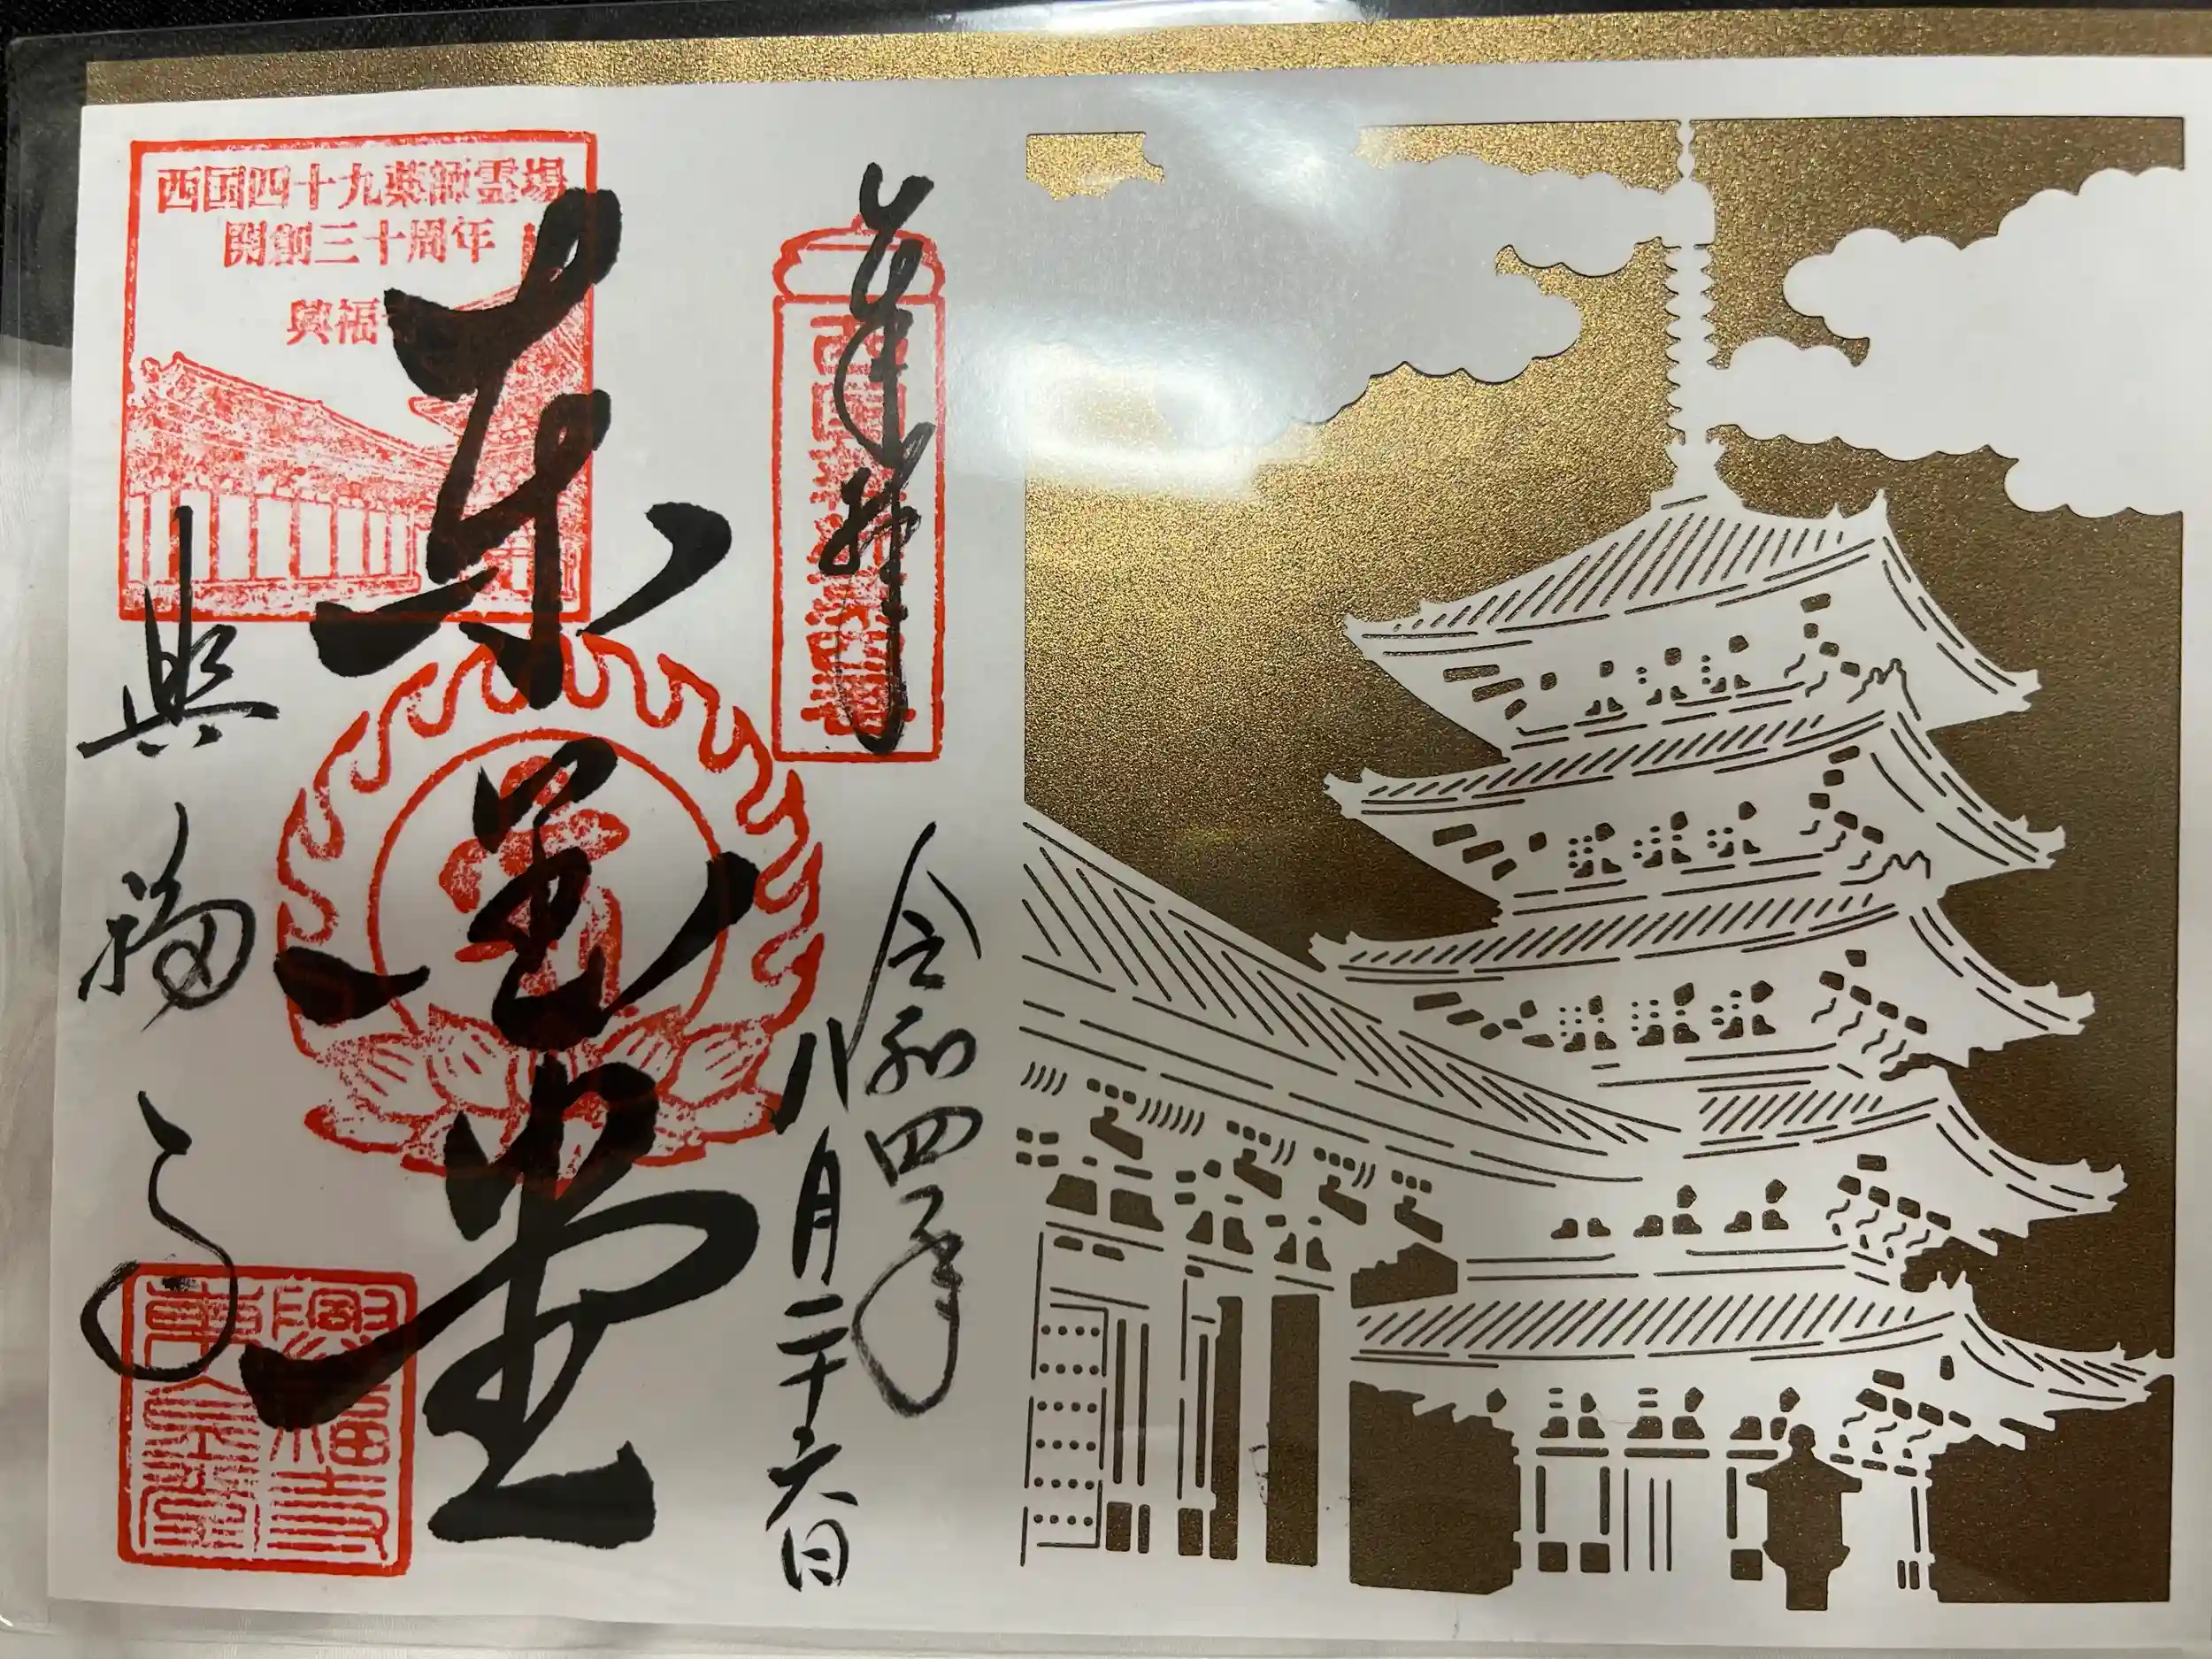 奉拝
令和四年
八月二十六日
東金堂
西国四十九薬師霊場
開創三十周年
興福
興福寺
興福寺
東金堂